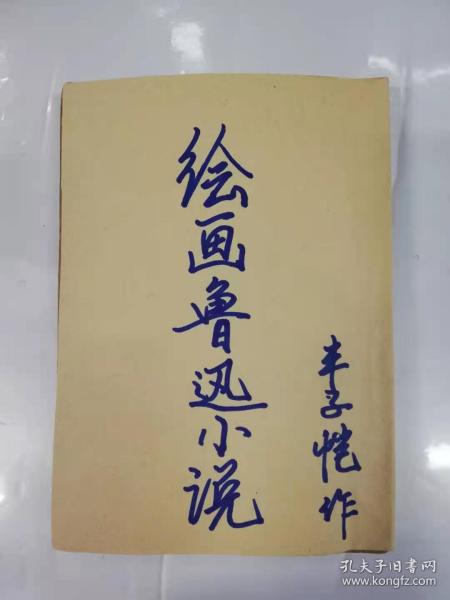 绘画鲁迅小说
丰子恺作
孔夫子旧书网
www.kongfz.com